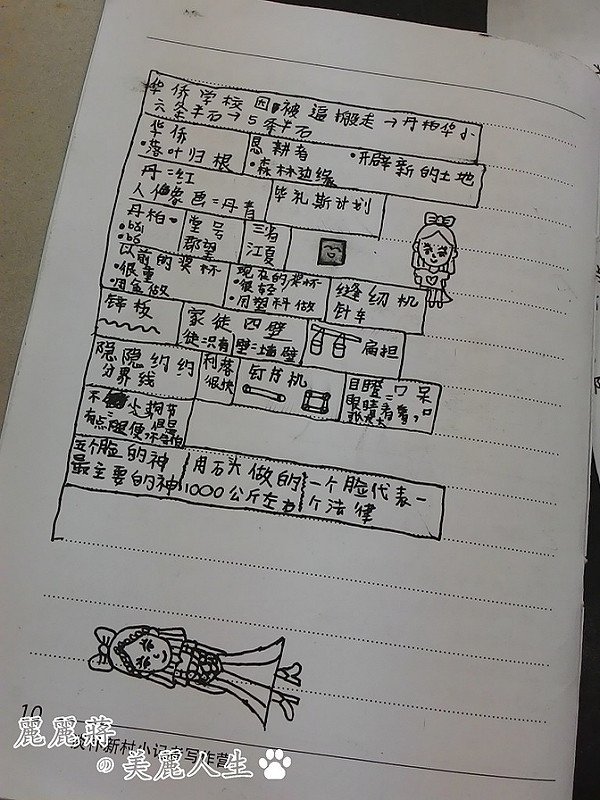 华侨学校因被逼搬走→丹柏华小
六条半石→5条半石
华侨
•落叶归根
恳耕者
•森林边缘
•开辟新的土地
丹=红
人像画=丹青
毕礼斯计划
丹柏
堂号
郡望
三省
江夏
以前的奖杯
•很重
•用鱼做
现在的奖杯
•很轻
•用塑料做
缝纫机
针车
锌板
家徒四壁
徒=只有
壁=墙壁
扁担
隐隐约约
分界线
利落
很快
钉书机
目瞪口呆
五个脸的神
最主要的神
用石头做的
1000公斤左右
一个脸代表一
个法律
10
新村小记者写作营
麗麗蔣
の美麗人生